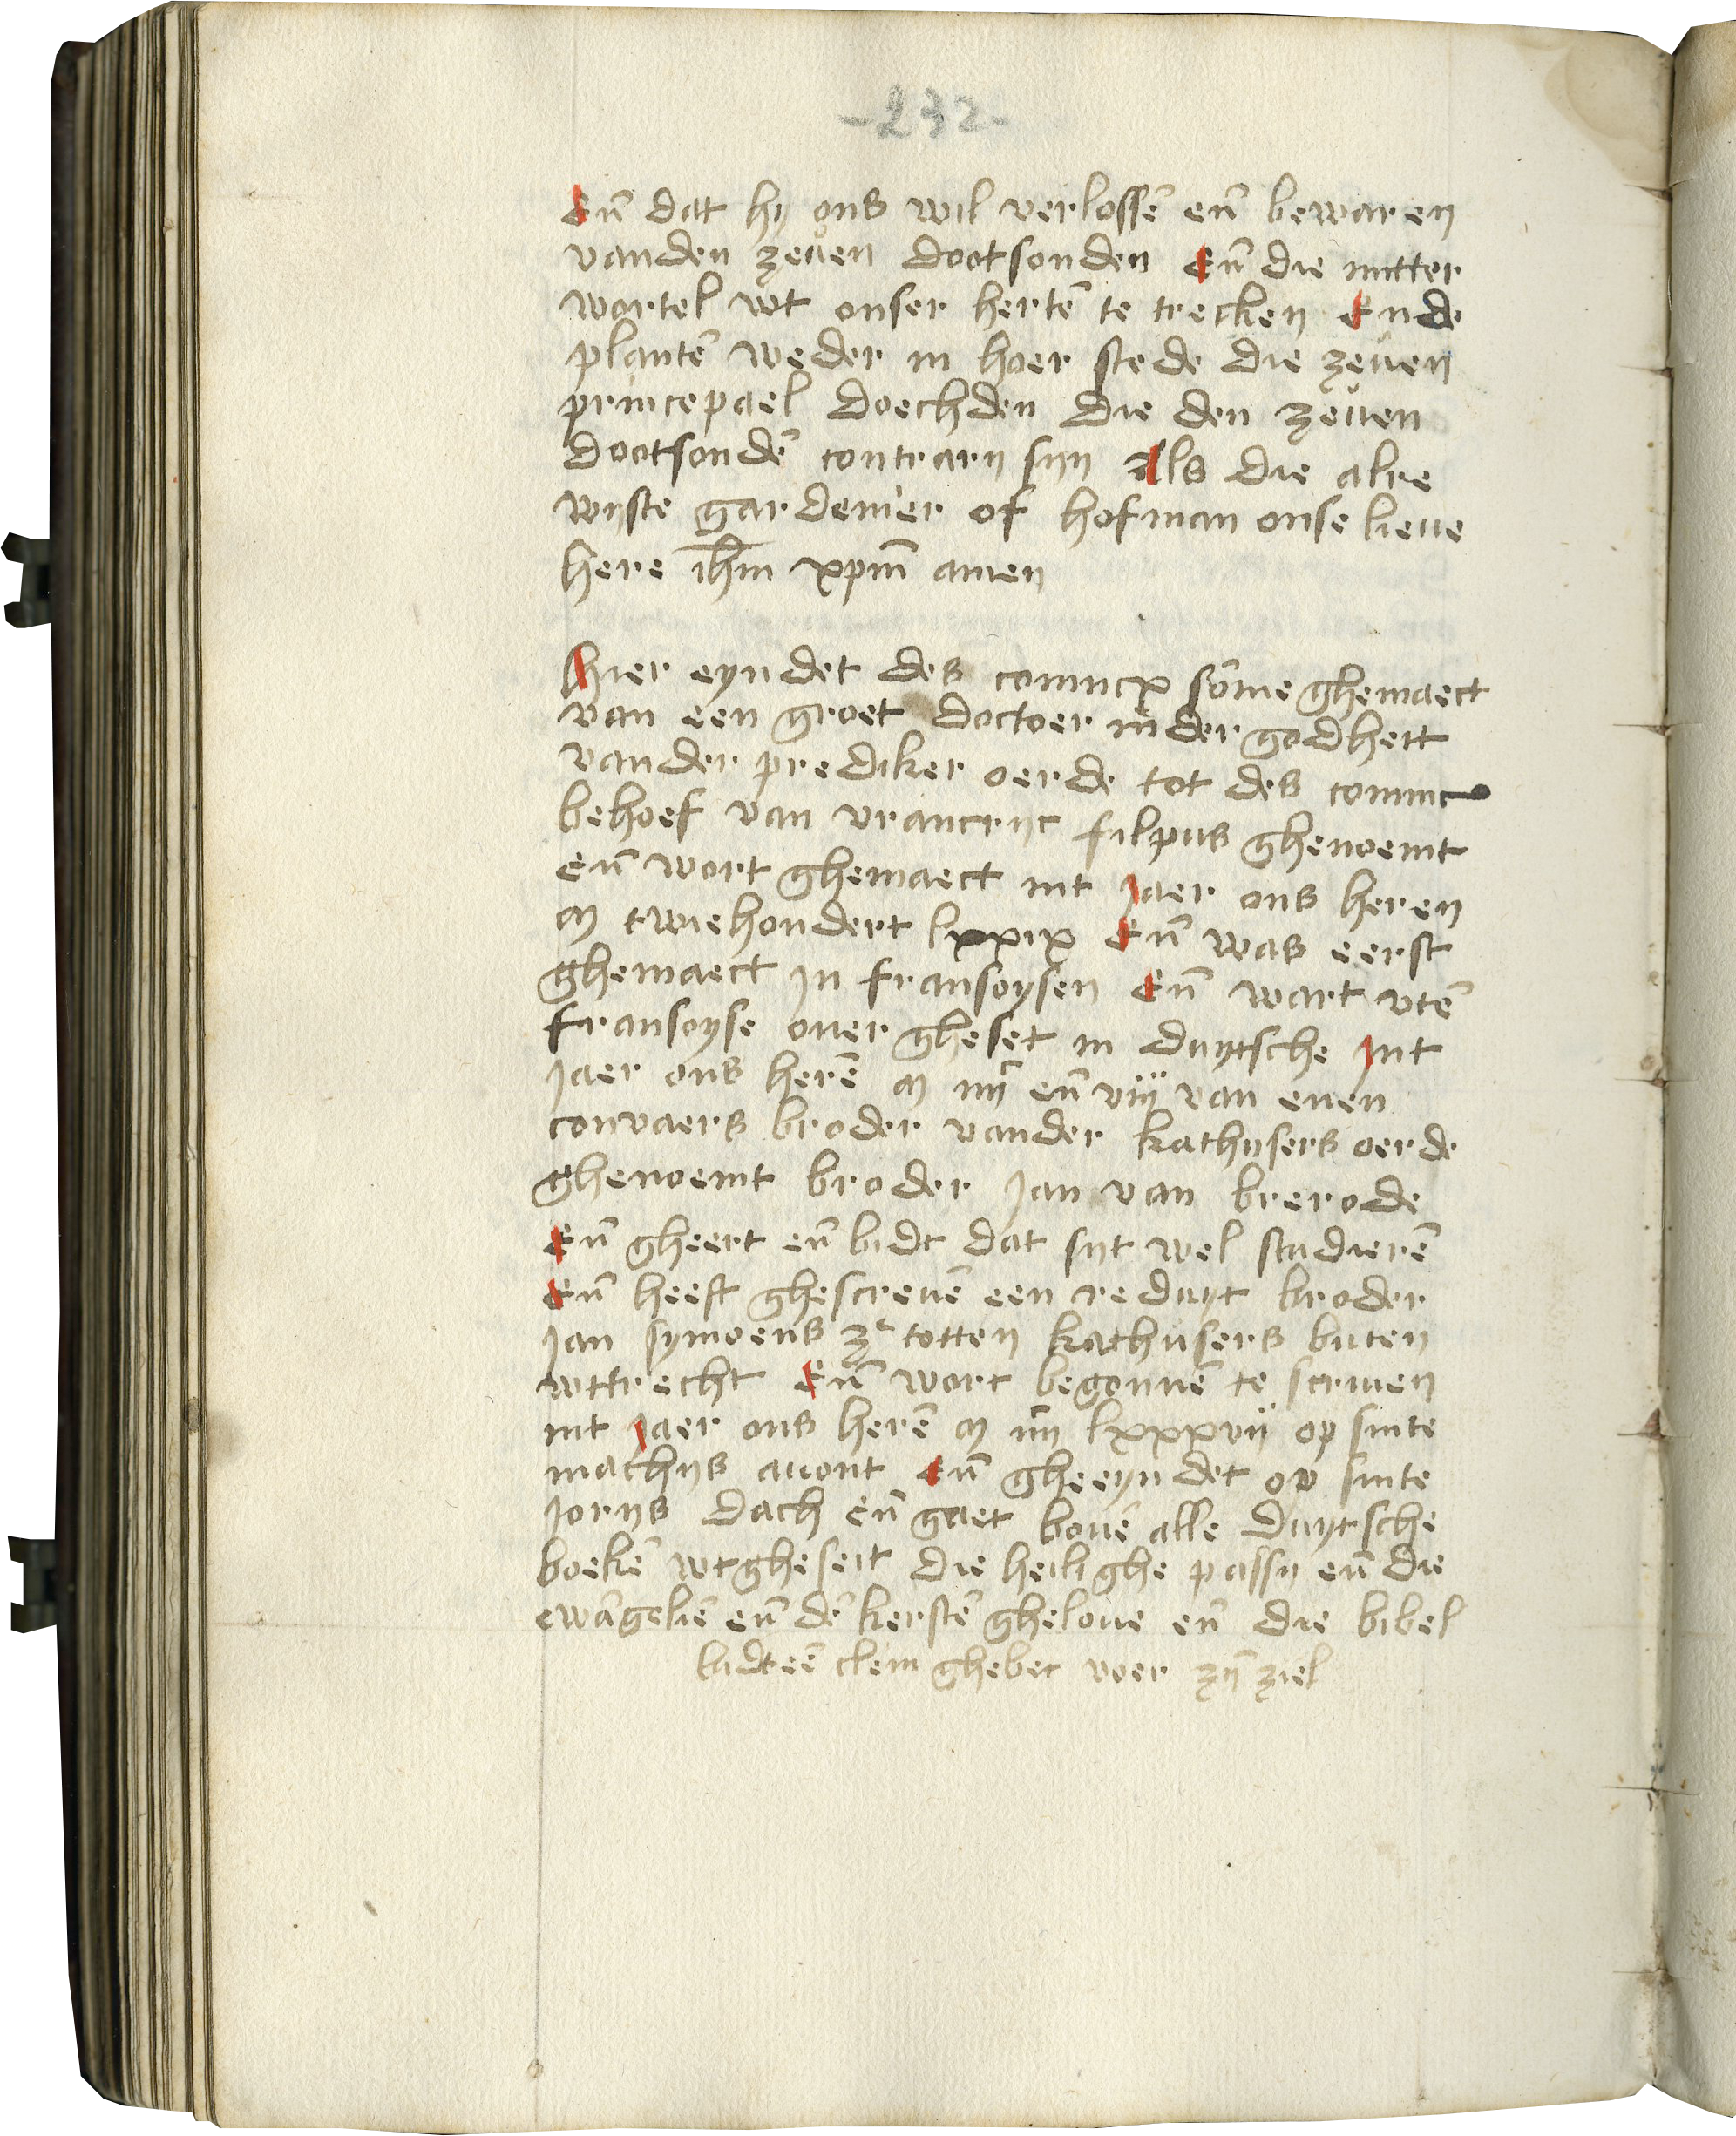 -232-
En̄ dat hij ons wil verlossē en̄ bewaren
vanden zeuen dootsonden En̄ die mitter
wortel wt onser hertē te trecken Ende
plantē weder in hoer stede die zeuen
princepael doechden die den zeuen
dootsondē contrarij sijn Als die alre
wijste gardenier of hofman onse lieue
here ih̄m xpm̄ amen
Hier eyndet des conincx sōme ghemaect
van een groet doctoer inder godheit
vander prediker oerde tot des coninc
behoef van vrancrijc filpus ghenoemt
en̄ wort ghemaect int Jaer ons heren
m twiehondert lxxix En̄ was eerst
ghemaect in fransoysen En̄ wart vtē
fransoyse ouer gheset in duytsche Int
Jaer ons herē m iiij en̄ viij van enen
convaers broder vander kathusers oerde
ghenoemt broder Jan van brerode
En̄ gheert en̄ bidt dat sijt wel studierē
En̄ heeft ghescreuē een reduyt broder
Jan symoens zͨ totten kathusers buten
wttrecht En̄ wort begonnē te scriuen
int Jaer ons herē m iiij lxxxvij op sinte
mathijs auont En̄ gheeyndet op sinte
Jorijs dach en̄ gaet bouē alle duytsche
boekē wtgheseit die heilighe passij en̄ die
ewāgeliē en̄ dē kerstē gheloue en̄ die bibel
bidt eē clein ghebet voer zij̄ ziel